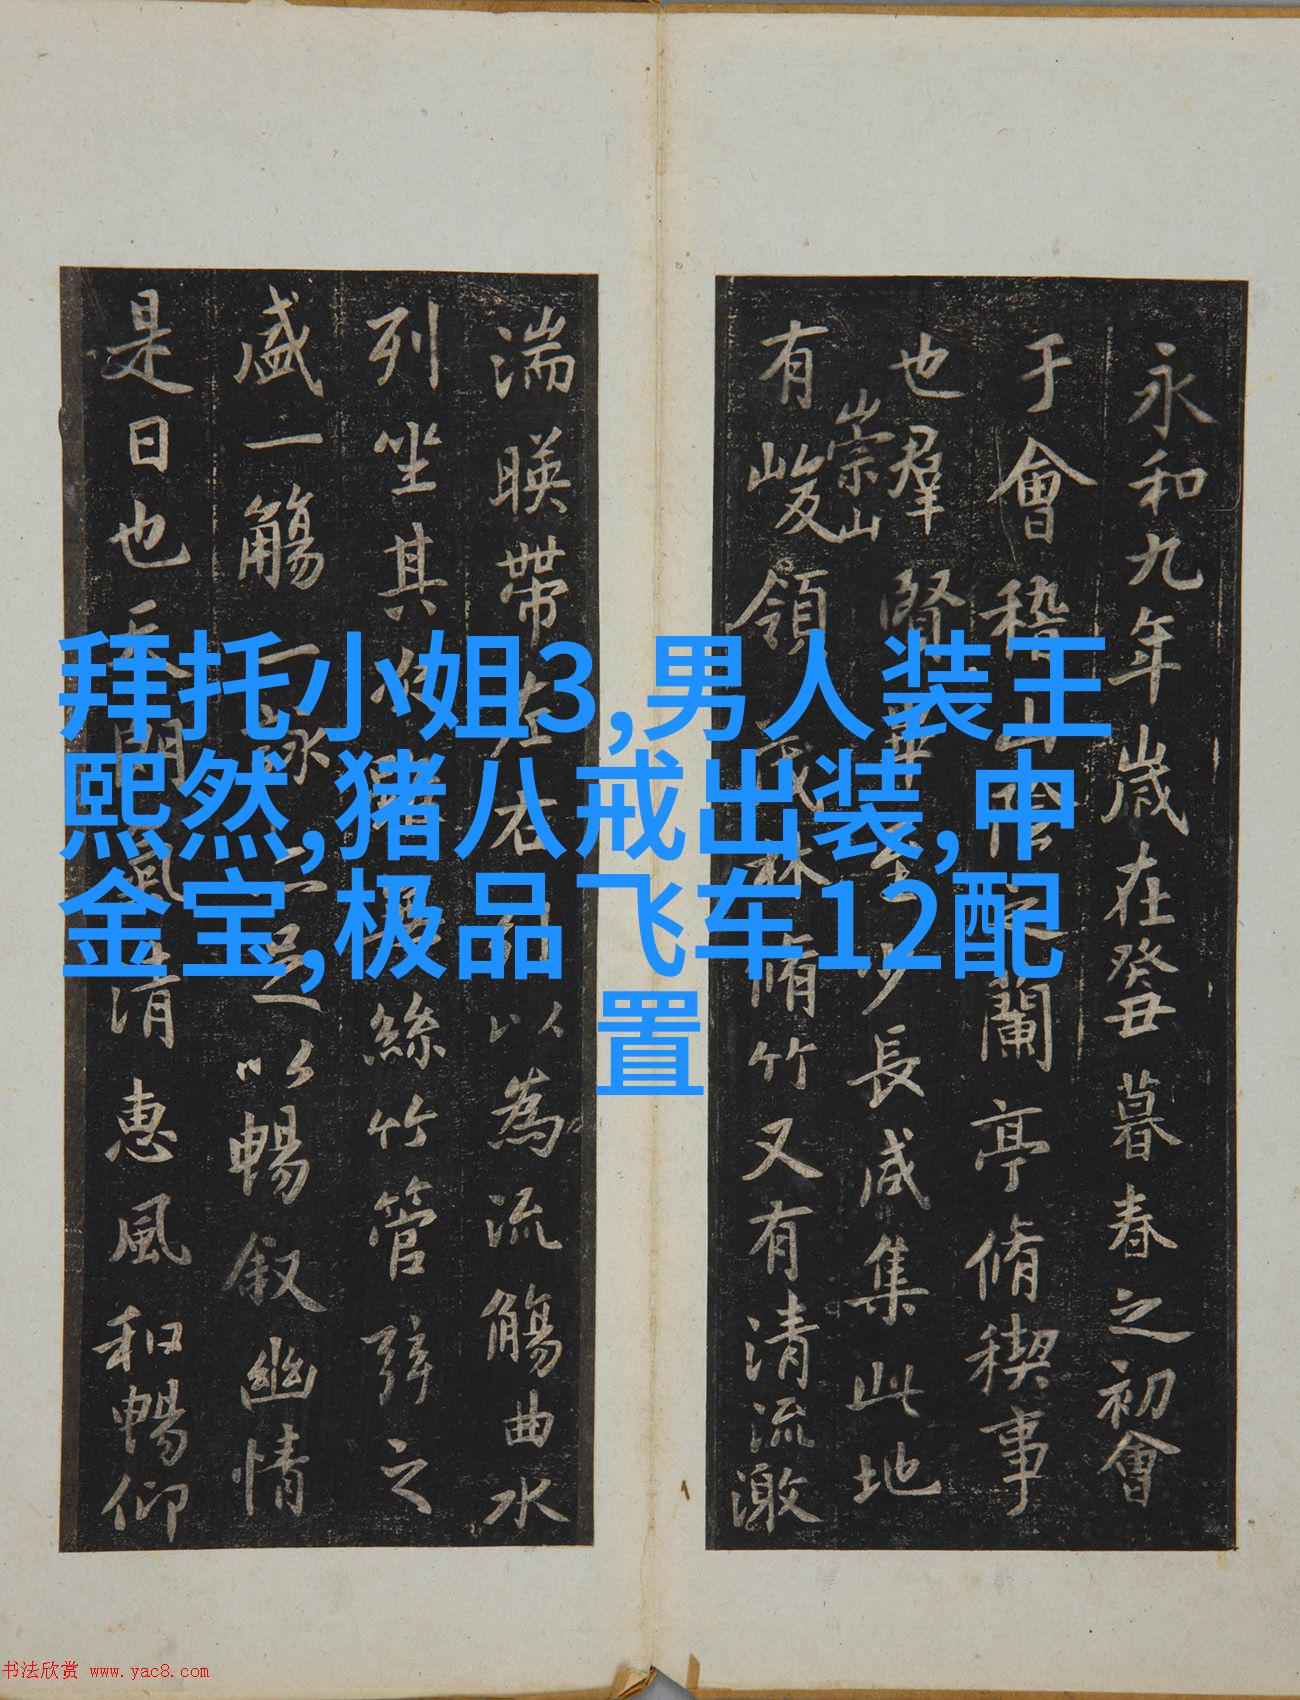 永和九年歲在癸丑暮春之初會
于會稽山陰之蘭亭脩稧事
也羣賢畢至少長咸集此地
有崇山峻領茂林脩竹又有清流激
湍暎帶左右引以為流觴曲水
列坐其次雖無絲竹管弦之
盛一觴一詠亦足以暢叙幽情
是日也天朗氣清惠風和暢仰
拜托小姐3,男人装王
熙然,猪八戒出装,中
金宝,极品飞车12配
置
书法欣赏 www.yac8.com